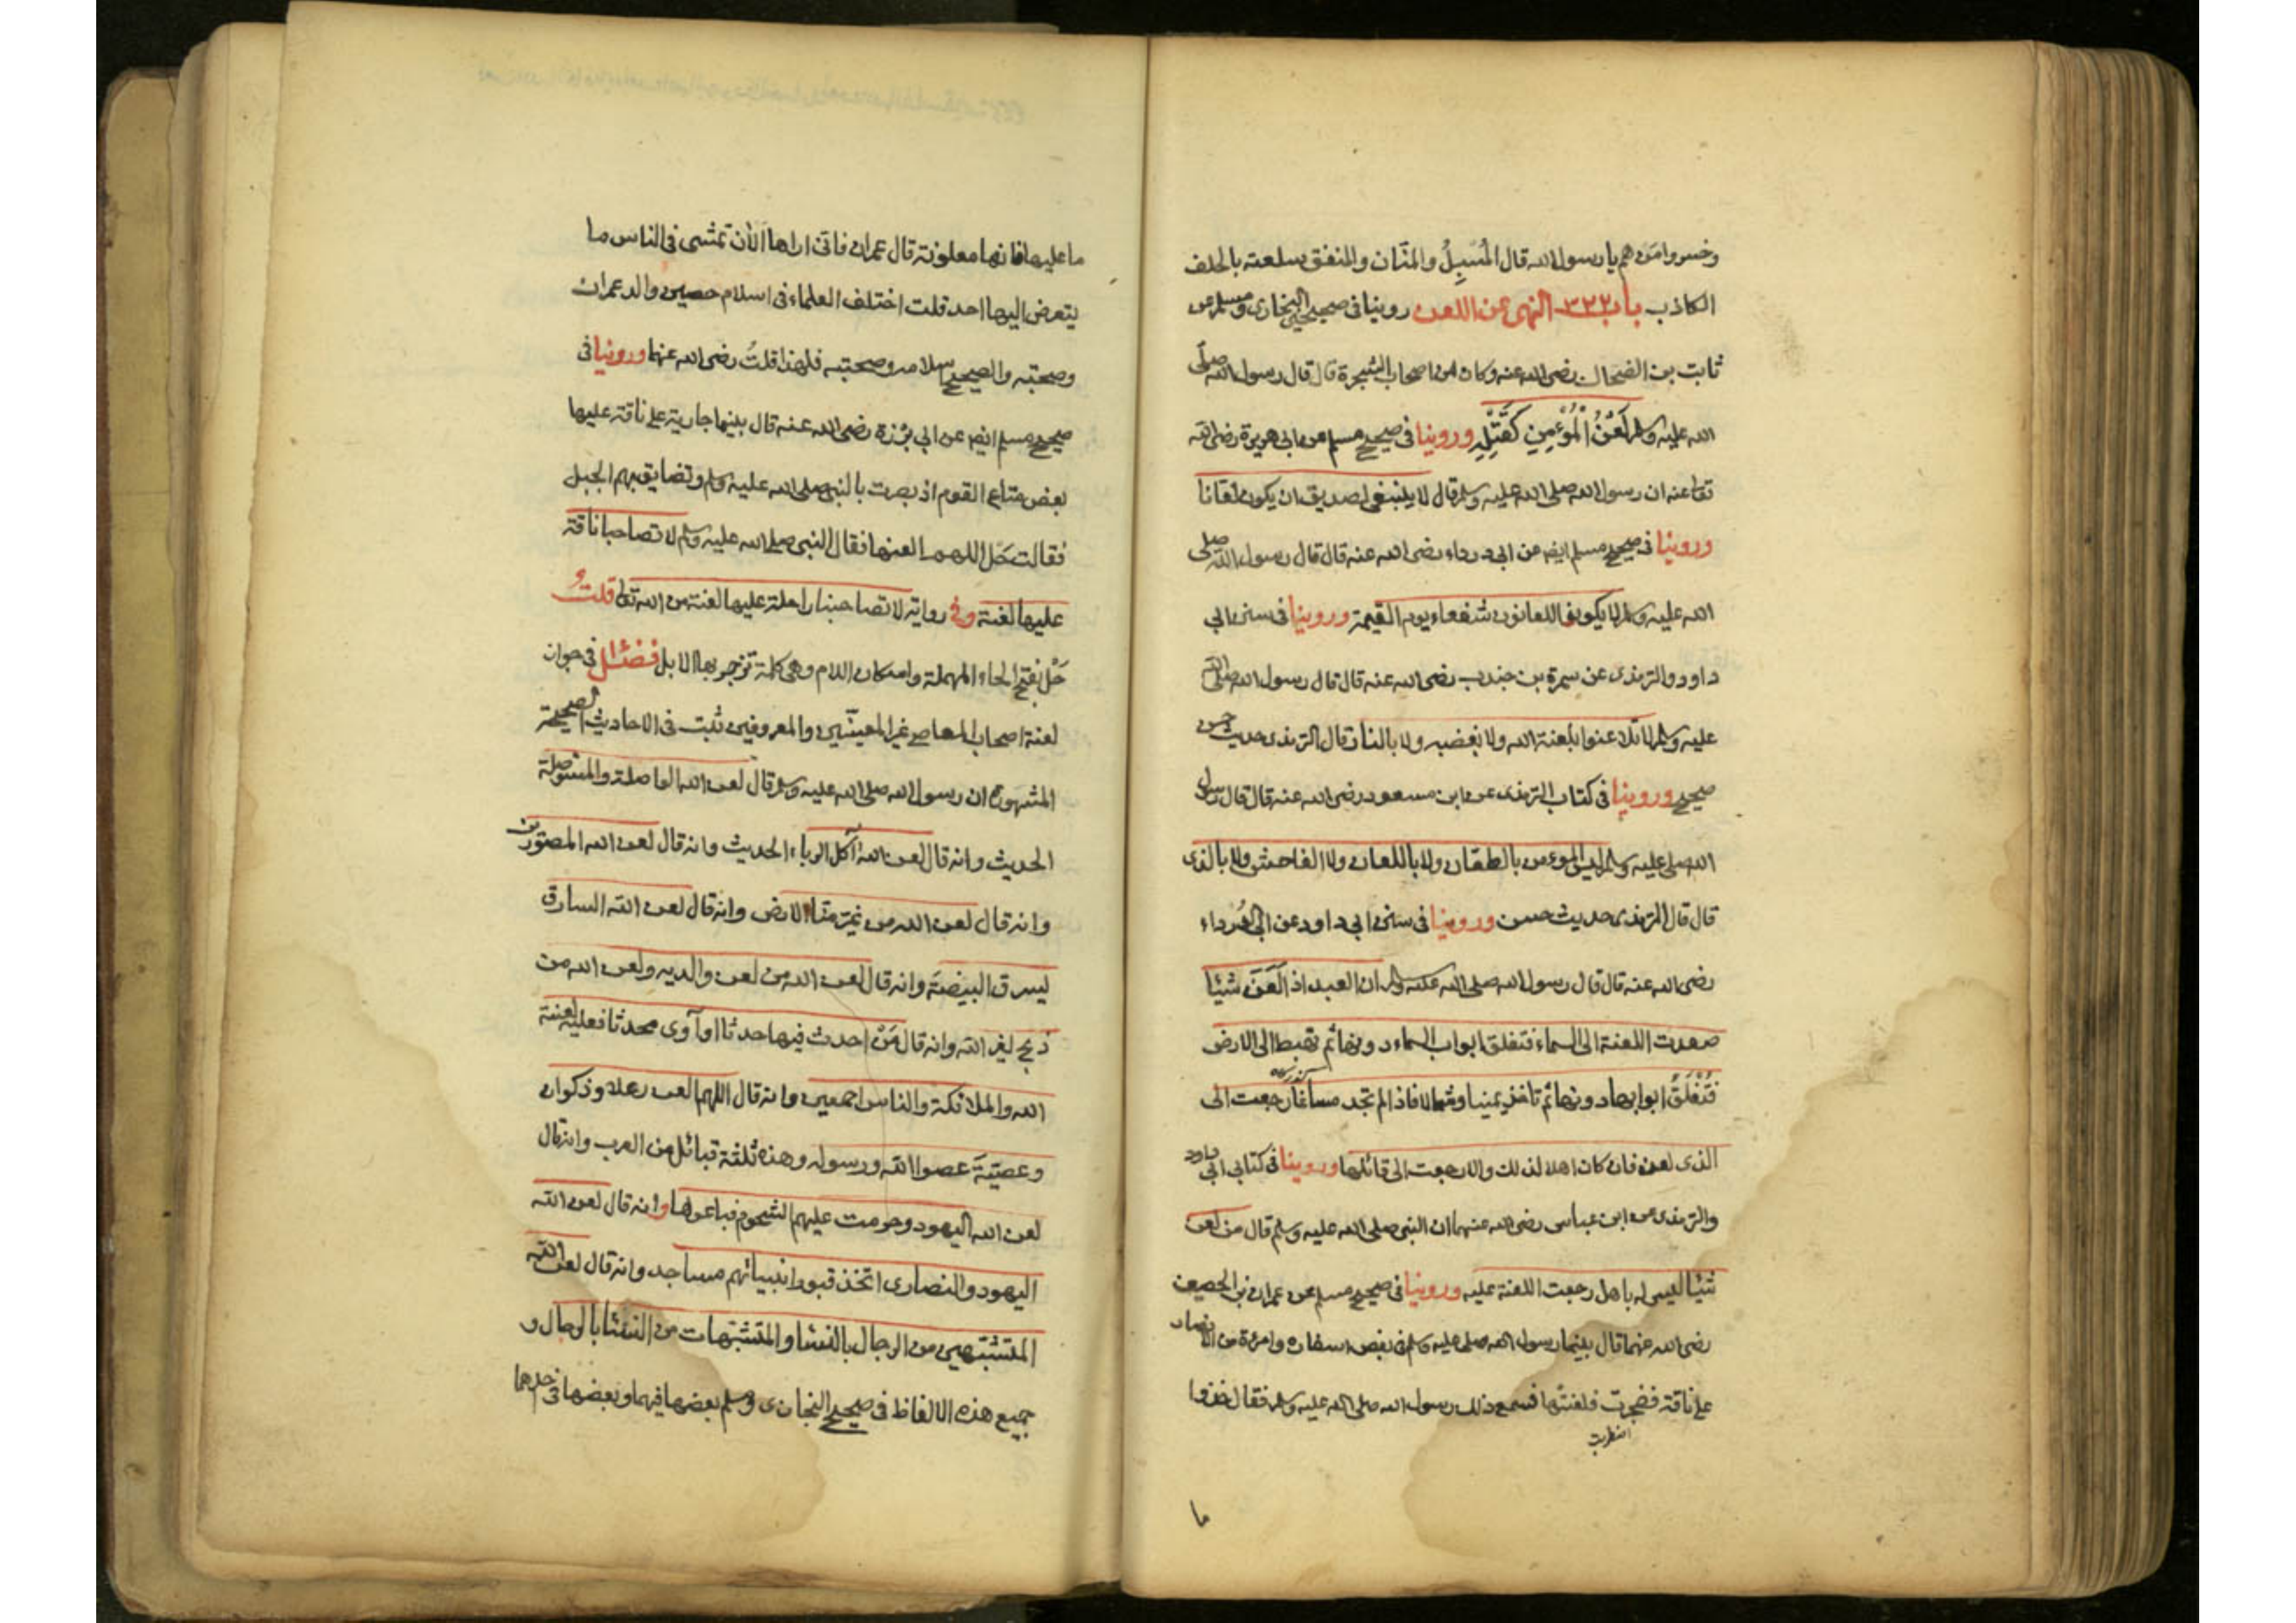 وخسروا من هم يا رسول الله قال المُسْبِلُ والمنّان والمنفق سلعته بالحلف
الكاذب باب ٣٢٢ النهى عن اللعن روينا فى صحيحى البخارى ومسلم عن
ثابت بن الضحاك رضى الله عنه وكان من اصحاب الشجرة قال قال رسول الله صلى
الله عليه وسلم لَعْنُ الْمُؤْمِنِ كَقَتْلِهِ وروينا فى صحيح مسلم عن ابى هريرة رضى الله
تعالى عنه ان رسول الله صلى الله عليه وسلم قال لا ينبغى لصديق ان يكون لعّانا
وروينا فى صحيح مسلم ايضا عن ابى درداء رضى الله عنه قال قال رسول الله صلى
الله عليه وسلم لا يكون اللعانون شفعاء يوم القيمة وروينا فى سنن ابى
داود والترمذى عن سمرة بن جندب رضى الله عنه قال قال رسول الله صلى الله
عليه وسلم لا تلاعنوا بلعنة الله ولا بغضبه ولا بالنار قال الترمذى حديث حسن
صحيح وروينا فى كتاب الترمذى عن ابن مسعود رضى الله عنه قال قال رسول
الله صلى عليه وسلم ليس المؤمن بالطعّان ولا باللعان ولا الفاحش ولا بالذى
قال قال الترمذى حديث حسن وروينا فى سنن ابى داود عن ابى الدرداء
رضى الله عنه قال قال رسول الله صلى الله عليه وسلم ان العبد اذا لَعَنَ شيئا
صعدت اللعنة الى السماء فتغلق ابواب السماء دونها ثم تهبط الى الارض
فَتُغْلَقُ ابوابها دونها ثم تاخذ يمينا وشمالا فاذا لم تجد مساغا رجعت الى
الذى لعن فان كان اهلا لذلك والا رجعت الى قائلها وروينا فى كتابى ابى داود
والترمذى عن ابن عباس رضى الله عنهما ان النبى صلى الله عليه وسلم قال من لعن
شيئا ليس له باهل رجعت اللعنة عليه وروينا فى صحيح مسلم عن عمران بن الحصين
رضى الله عنهما قال بينما رسول الله صلى عليه وسلم فى بعض اسفاره وامرءة من الانصار
على ناقة فضجرت فلعنتها فسمع ذلك رسول الله صلى الله عليه وسلم فقال خذوا
اضطربت
ما
ما عليها فانها ملعونة قال عمران فانى اراها الآن تمشى فى الناس ما
يتعرض اليها احد قلت اختلف العلماء فى اسلام حصين والد عمران
وصحبته والصحيح اسلامه وصحبته فلهذا قلتُ رضى الله عنهما وروينا فى
صحيح مسلم ايضا عن ابى برْزة رضى الله عنه قال بينما جارية على ناقة عليها
بعض متاع القوم اذ بصرت بالنبى صلى الله عليه وسلم وتضايق بهم الجبل
فقالت حَلْ اللهم العنها فقال النبى صلى الله عليه وسلم لا تصاحبنا ناقة
عليها لعنة وفى رواية لا تصاحبنا راحلة عليها لعنة من الله تعالى قلت و
حَلْ بفتح الحاء المهملة واسكان اللام وهى كلمة تزجر بها الابل فصل فى جواز
لعنة اصحاب المعاصى غير المعيّنين والمعروفين ثبت فى الاحاديث الصحيحة
المشهورة ان رسول الله صلى الله عليه وسلم قال لعن الله الواصلة والمستوصلة
الحديث وانه قال لعن الله آكل الرباء الحديث وانه قال لعن الله المصوّرين
وانه قال لعن الله من غيّر منار الارض وانه قال لعن الله السارق
يسرق البيضة وانه قال لعن الله من لعن والديه ولعن الله من
ذبح لغير الله وانه قال مَنْ احدث فيها حدثا او آوى محدثا فعليه لعنة
الله والملائكة والناس اجمعين وانه قال اللهم العن رعلا وذكوان
وعصيّةَ عصوا الله ورسوله وهذه ثلثة قبائل من العرب وانه قال
لعن الله اليهود وحرمت عليهم الشحوم فباعوها وانه قال لعن الله
اليهود والنصارى اتخذ قبور انبيائهم مساجد وانه قال لعن الله
المتشبّهين من الرجال بالنساء والمتشبّهات من النساء بالرجال و
جميع هذه الالفاظ فى صحيح البخارى ومسلم بعضها فيهما وبعضها فى احدهما